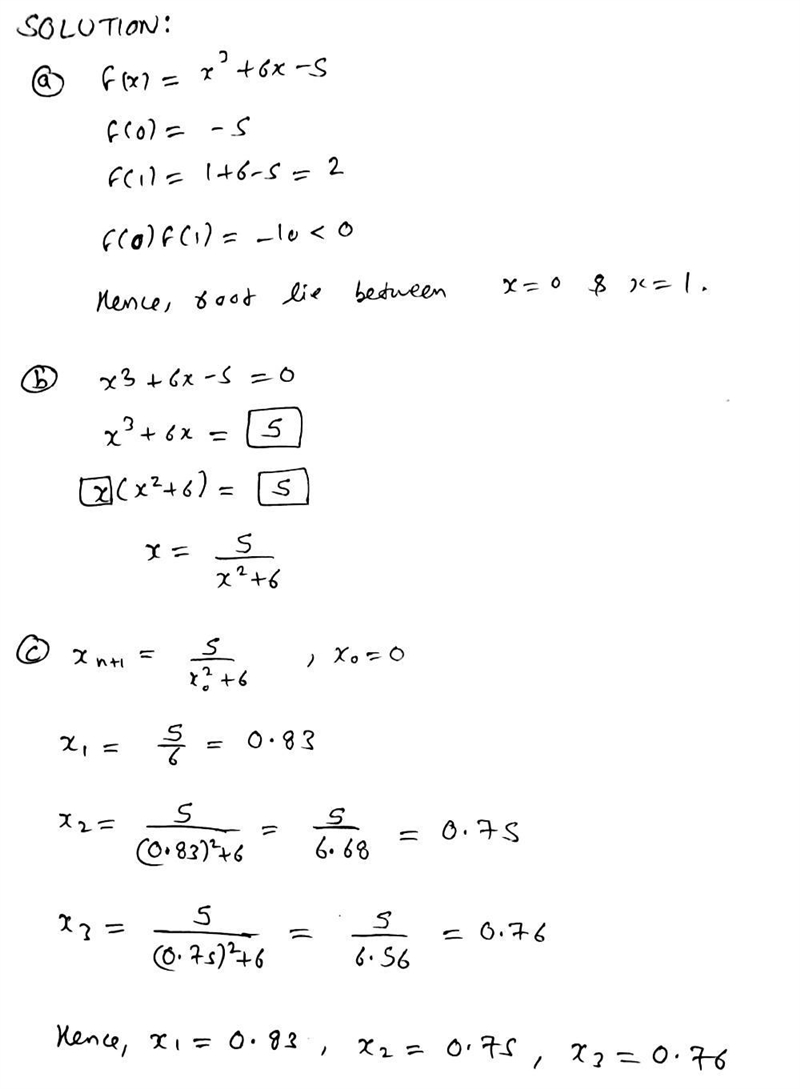 SOLUTION:
(a) f(x) = x³ + 6x - 5
f(0) = - 5
f(1) = 1+6-5 = 2
f(0) f(1) = -10 < 0
Hence, root lie between x = 0 & x = 1.
(b) x3 + 6x - 5 = 0
x³ + 6x = 5
x(x²+6) = 5
x = 5/(x²+6)
(c) xₙ₊₁ = 5/(x₀²+6) , x₀ = 0
x₁ = 5/6 = 0.83
x₂ = 5/((0.83)²+6) = 5/6.68 = 0.75
x₃ = 5/((0.75)²+6) = 5/6.56 = 0.76
Hence, x₁ = 0.83, x₂ = 0.75, x₃ = 0.76